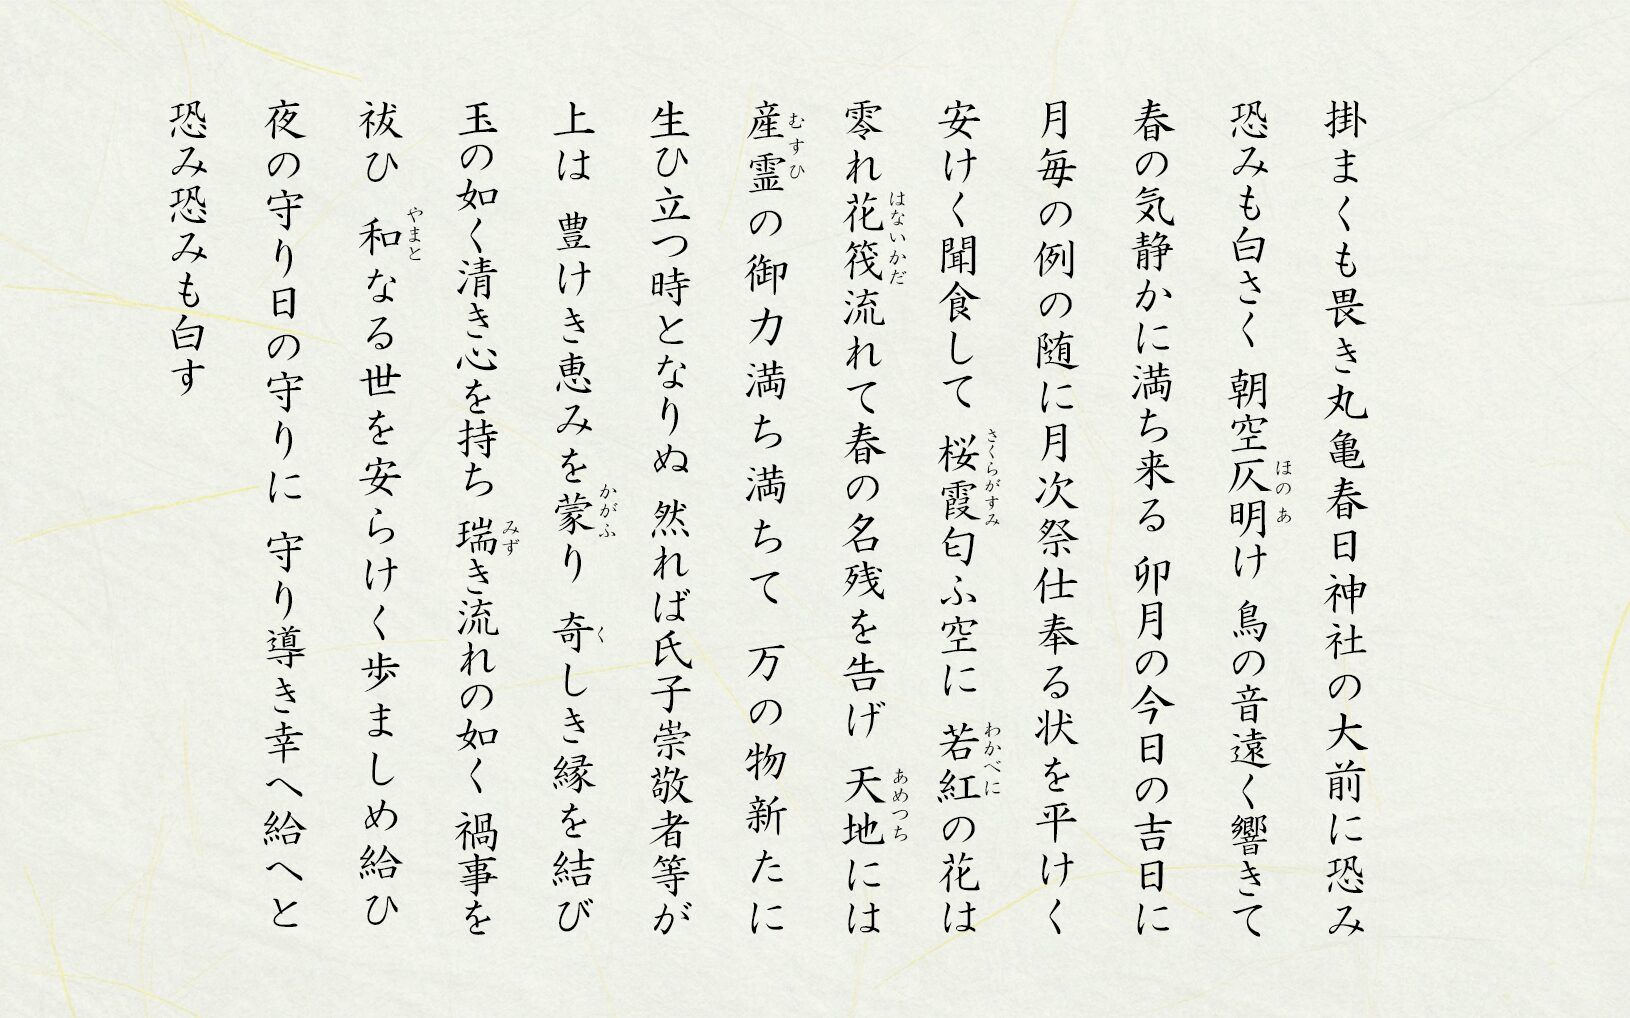 掛まくも畏き丸亀春日神社の大前に恐み
恐みも白さく 朝空仄明け 鳥の音遠く響きて
春の気静かに満ち来る 卯月の今日の吉日に
月毎の例の随に月次祭仕奉る状を平けく
安けく聞食して 桜霞匂ふ空に 若紅の花は
零れ花筏流れて春の名残を告げ 天地には
産霊の御力満ち満ちて 万の物新たに
生ひ立つ時となりぬ 然れば氏子崇敬者等が
上は 豊けき恵みを蒙り 奇しき縁を結び
玉の如く清き心を持ち 瑞き流れの如く 禍事を
祓ひ 和なる世を安らけく歩ましめ給ひ
夜の守り日の守りに 守り導き幸へ給へと
恐み恐みも白す
ほの あ
さくらがすみ
わかべに
はないかだ
あめつち
むすひ
かがふ
く
みず
やまと